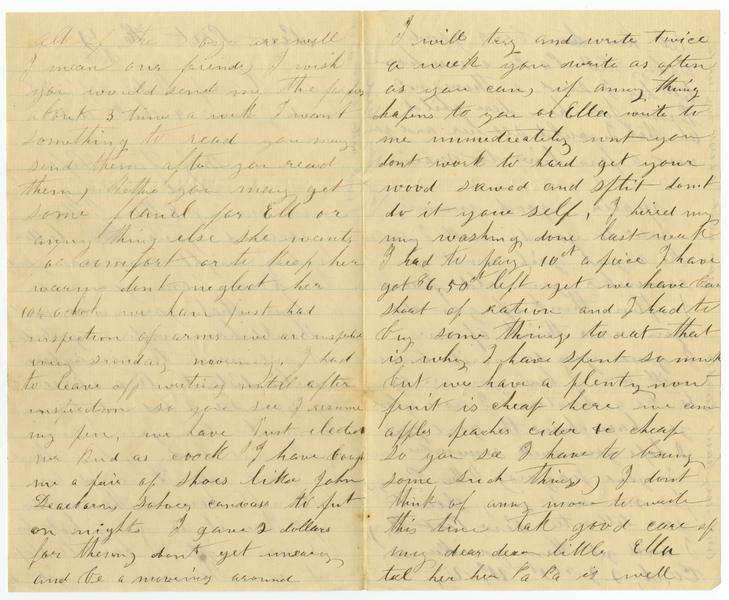 all of the boys are well
I mean our friends, I wish
you would send me the papers
about 3 times a week I want
something to read you may
send them after you read
them, you may get
some flanel for Ell or
anny thing else she wants
for comfort or to keep her
warm dont neglect her
10 oclock we have just had
inspection of arms we are inspected
evry sunday morning. I had
to leave off writing until after
inspection so you see I resume
my pen, we have just elected
me as cook I have bough
me a pair of shoes like John
canvass to put
on nights I gave 2 dollars
for them, dont get uneasy
and be a moveing around
I will try and write twice
a week you write as often
as you can, if anny thing
hapens to you or Ella write to
me immediately wont you
dont work to hard get your
wood sawed and split dont
do it your self, I hired my
my washing done last week
I had to pay 10ct a piece I have
got $6.50ct left yet we have been
short of ration and I had to
buy some things to eat that
is why I have spent so much
but we have a plenty now
fruit is cheap here we can
apples peaches cider &c cheap
so you see I have to buy
some such things, I dont
think of anny more to write
this time tak good care of
my dear dear little Ella
tel her her Pa Pa is well